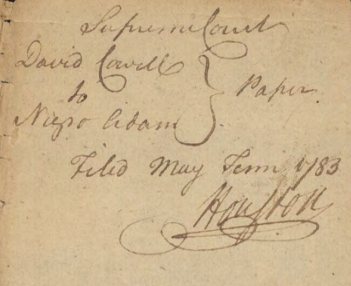 Supreme Court
David Cowell
to
Negro Adam
Paper.
Filed May Term 1783
Houston